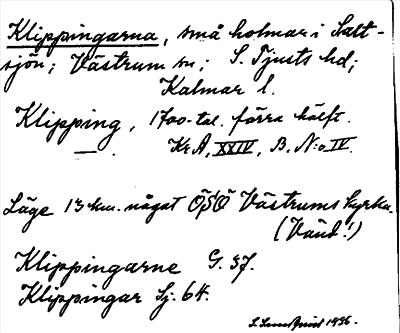 Klippingarna, små holmar i Salt-
sjön; Västrum sn; S. Tjusts hd;
Kalmar l.
Klipping, 1700-tal. förra hälft.
— . Kr.A, XXIV, B. N:o IV.
Läge 13 km. något ÖSÖ Västrums kyrka.
(Vänd!)
Klippingarne G. 37.
Klippingar Sj. 64.
1936.